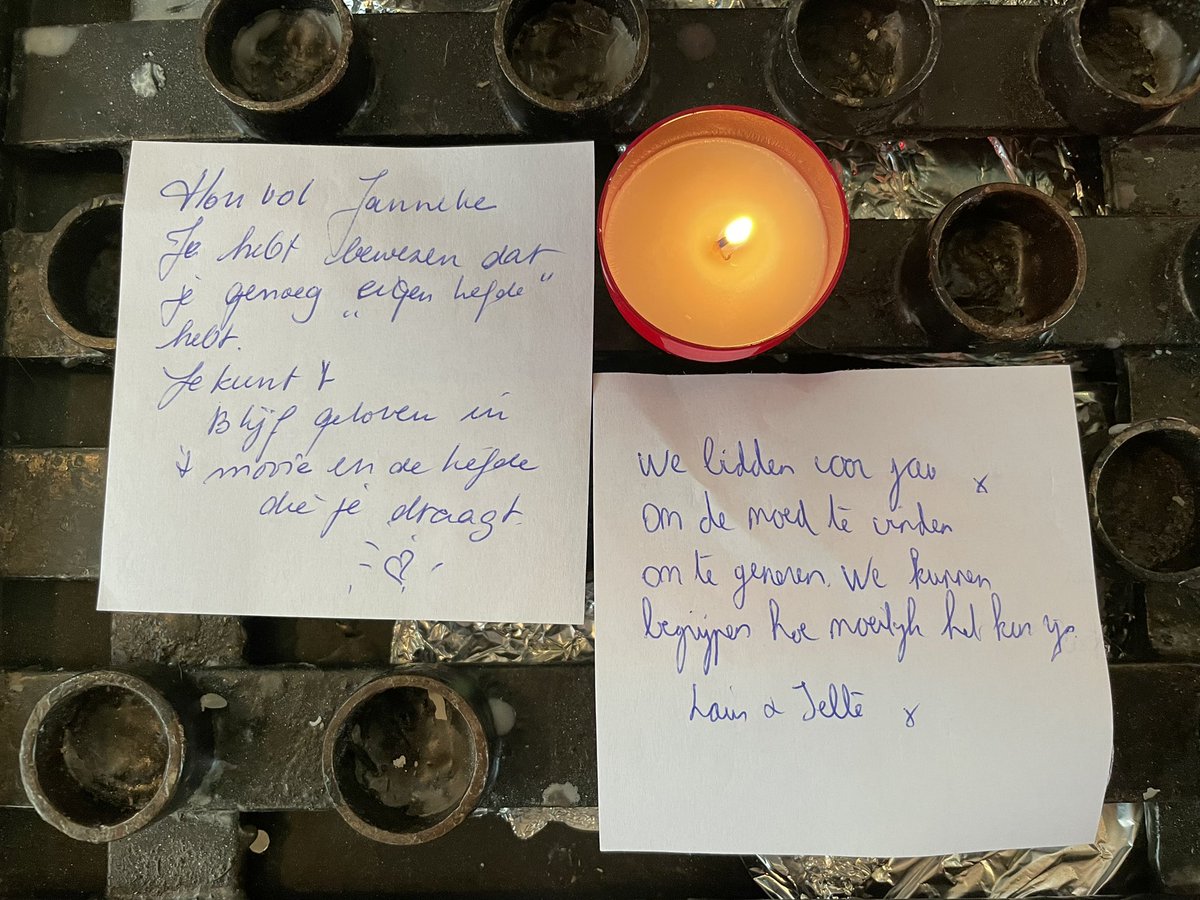 Hou vol Janneke
Je hebt bewezen dat
je genoeg "eigen liefde"
hebt.
Je kunt 't
Blijf geloven in
't mooie en de liefde
die je draagt.
We bidden voor jou x
om de moed te vinden
om te genezen. We kunnen
begrijpen hoe moeilijk het kan zijn.
& Jelle x